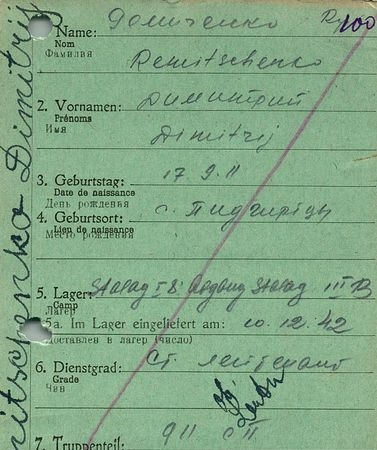 Name: Домиченко 100
Nom
Фамилия
Demitschenko
2. Vornamen: Димитрий
Prénoms
Имя
Dimitrij
3. Geburtstag: 17.9.11
Date de naissance
День рождения
4. Geburtsort: с.
Lien de naissance
Место рождения
5. Lager: Stalag Stalag III B
Camp
Лагерь
5a. Im Lager eingeliefert am: 10.12.42
Доставлен в лагерь (число)
6. Dienstgrad: Ст. лейтенант
Grade
Чин
7. Truppenteil: 911
Dimitrij